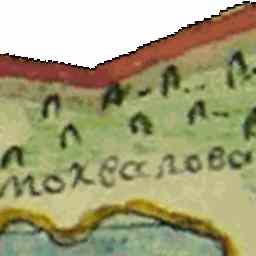 мохвалова